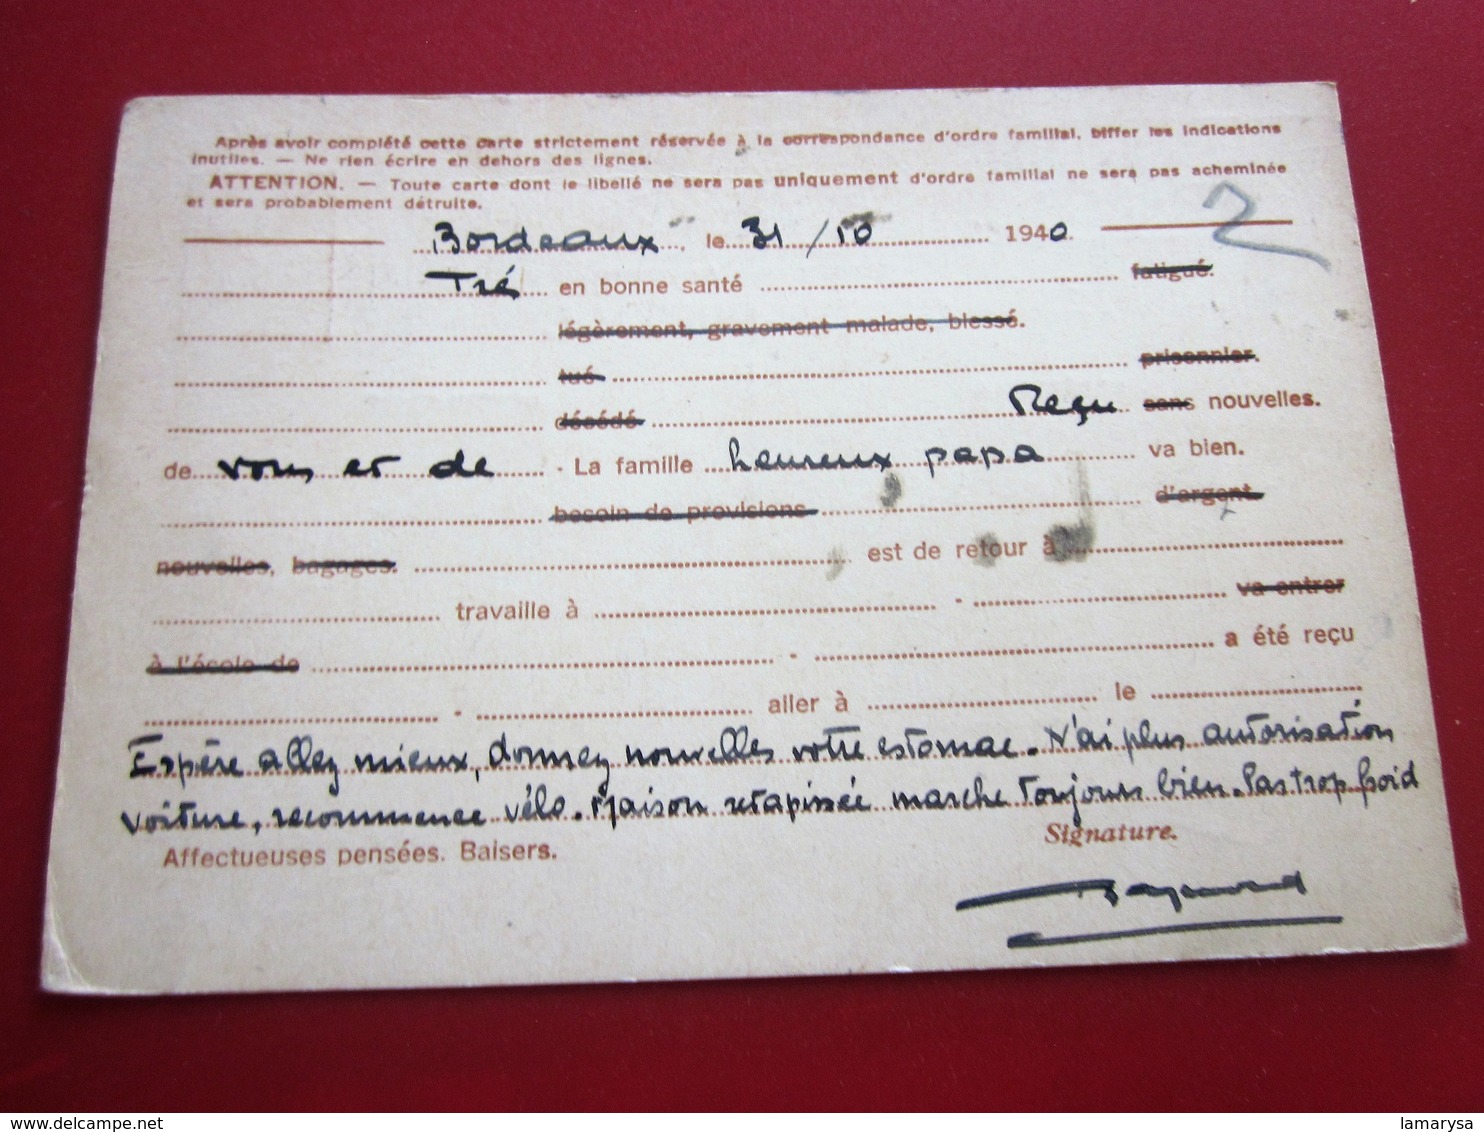 Après avoir complété cette carte strictement réservée à la correspondance d'ordre familial, biffer les indications
inutiles. — Ne rien écrire en dehors des lignes.
ATTENTION. — Toute carte dont le libellé ne sera pas uniquement d'ordre familial ne sera pas acheminée
et sera probablement détruite.
Bordeaux, le 31/10 1940
Tré en bonne santé fatigué.
légèrement, gravement malade, blessé.
tué prisonnier.
décédé Reçu sans nouvelles.
de vous et de - La famille heureux papa va bien.
besoin de provisions d'argent
nouvelles, bagages. est de retour à
travaille à - va entrer
à l'école de - a été reçu
- aller à le
Espère allez mieux, donnez nouvelles votre estomac. N'ai plus autorisation
voiture, recommence vélo. Maison retapissée marche toujours bien. Pas trop froid
Affectueuses pensées. Baisers. Signature.
Raymond
2
delcampe.net
lamarysa